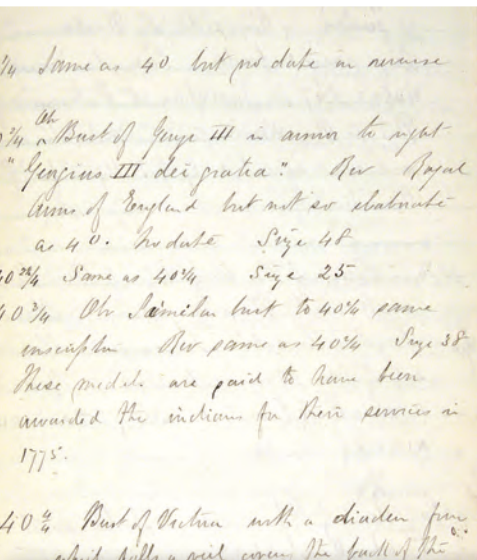 ¼ Same as 40 but no date in reverse
¾ Ob Bust of George III in armor to right
"Georgius III dei gratia." Rev Royal
Arms of England but not so elaborate
as 40. No date Size 48
Same as 40¾ Size 25
40¾ Ob Similar bust to 40¾ same
inscription Rev same as 40¾ Size 38
These medals are said to have been
awarded the indians for their services in
1775.
Bust of Victoria with a diadem from
which falls a veil covers the back of the